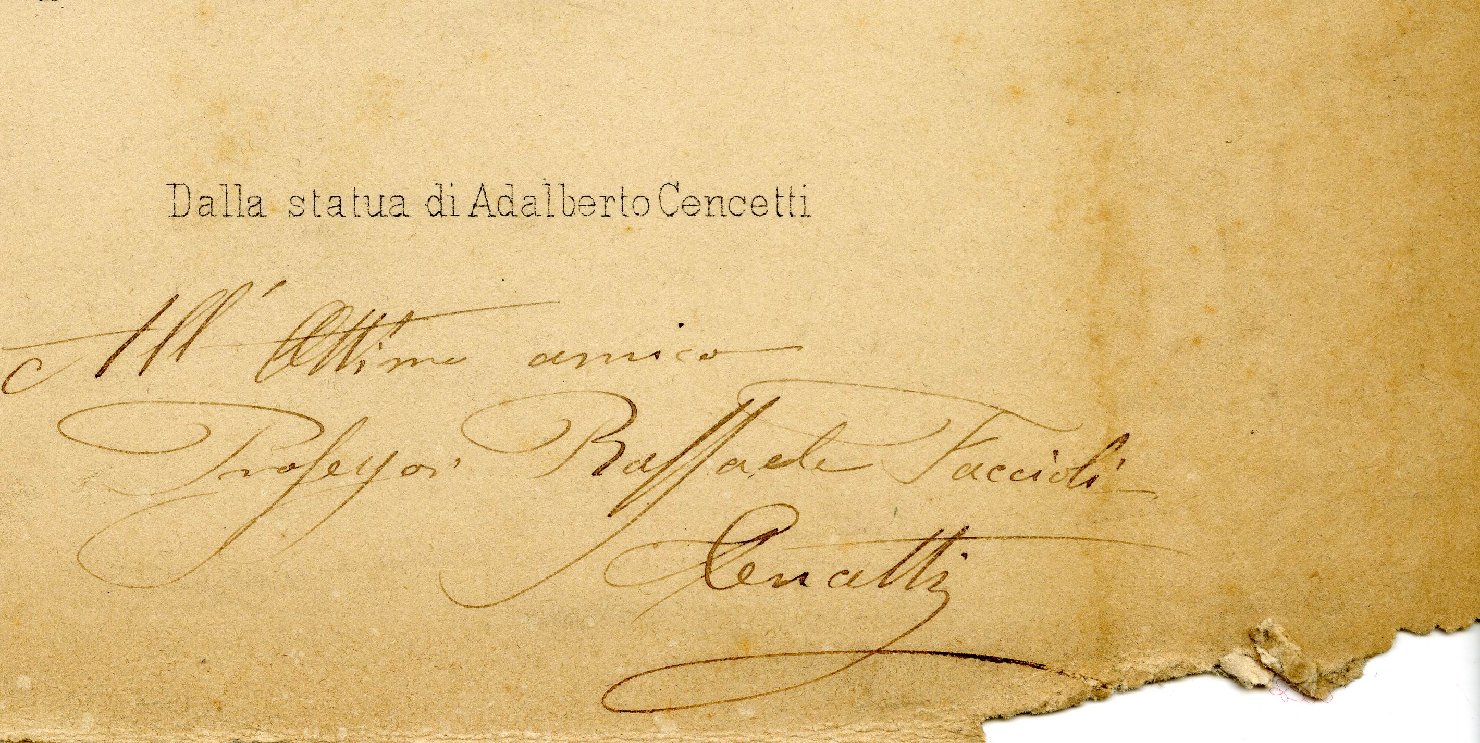 Dalla statua di Adalberto Cencetti
All' Ottimo amico
Professor Raffaele Faccioli
Cencetti